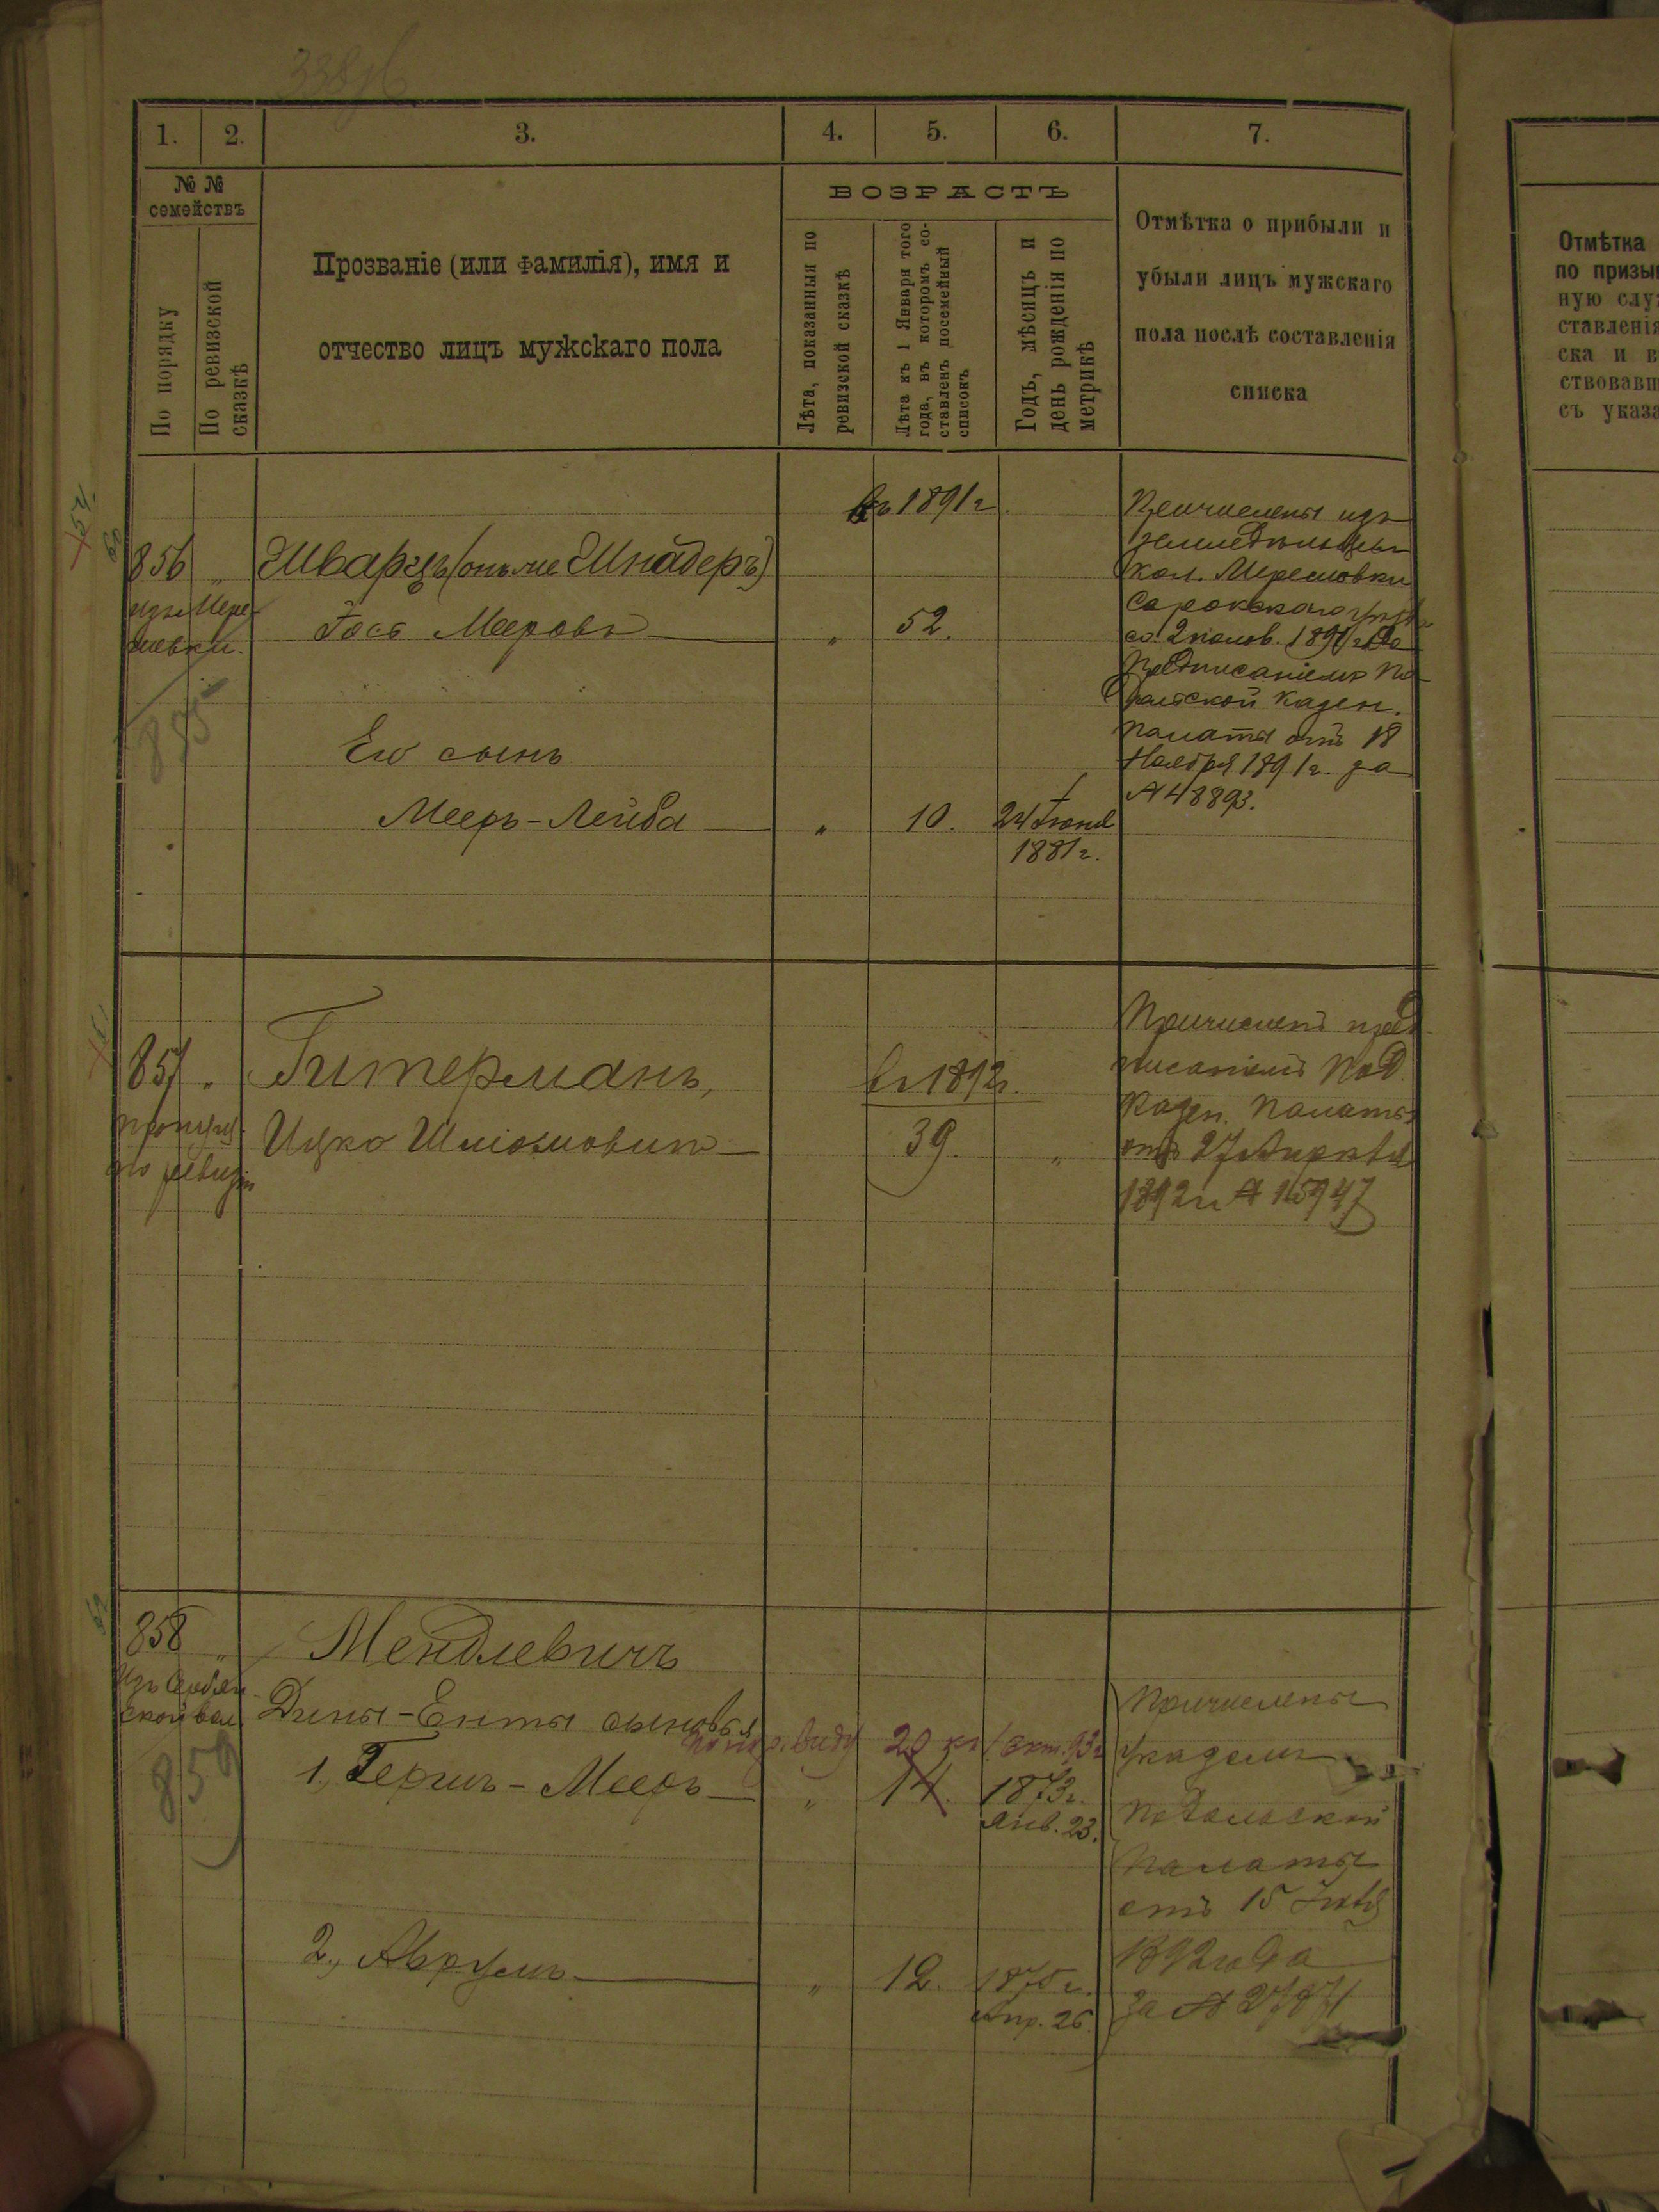 338об
1. 2. 3. 4. 5. 6. 7.
№ №
семействъ
По порядку
По ревизской
сказкѣ
Прозваніе (или фамилія), имя и
отчество лицъ мужскаго пола
ВОЗРАСТЪ
Лѣта, показанныя по
ревизской сказкѣ
Лѣта къ 1 Января того
года, въ которомъ со-
ставленъ посемейный
списокъ
Годъ, мѣсяцъ и
день рожденія по
метрикѣ
Отмѣтка о прибыли и
убыли лицъ мужскаго
пола послѣ составленія
списка
Отмѣтка
по призы
ную слу
ставленія
ска и в
ствовавш
съ указа
856 „ Шварцъ (онъ же Шнадеръ)
изъ Мере-
шевки.
855
Іось Мееровъ „ 52.
въ 1891 г
Его сынъ
Мееръ-Лейба „ 10. 24 Іюня
1881 г.
Причислены изъ
земледѣльцевъ
кол. Мерешовки
Сорокскаго уѣзда
со 2 полов. 1891 года
Предписаніемъ По-
дольской Казен.
Палаты отъ 18
Ноября 1891 г. за
№ 48893.
857 „ Гитерманъ,
по ревизіи
Ицко Шліомовичъ
въ 1892 г.
39. „
Причисленъ пред-
писаніемъ Под.
Казен. Палаты
отъ 27 Апрѣля
1892 г. № 15947
858 „ Мендлевичъ
Изъ
ской вол.
859
Дины-Енты сыновья
20 къ 1 окт. 93 г
1., Гершъ-Мееръ „ 14. 1873 г.
Янв. 23.
2., Аврумъ „ 12. 1875 г.
Апр. 26.
Причислены
указомъ
Подольской
Палаты
отъ 15
1892 года
за №